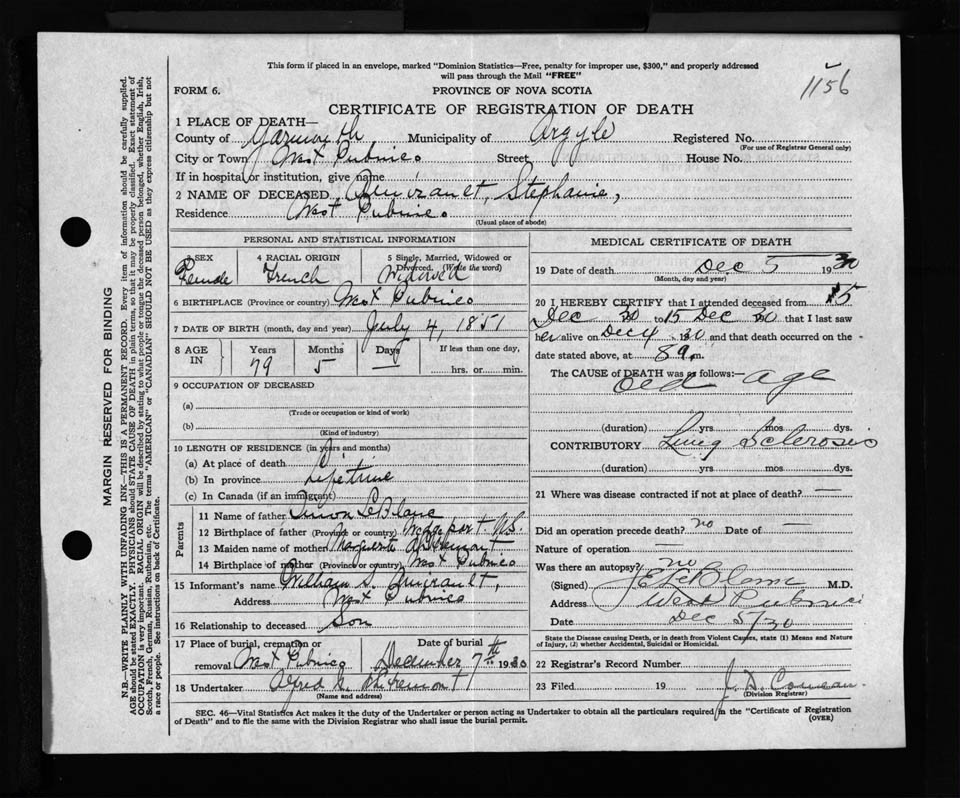 This form if placed in an envelope, marked "Dominion Statistics—Free, penalty for improper use, $300," and properly addressed
will pass through the Mail "FREE"
1156
FORM 6.
PROVINCE OF NOVA SCOTIA
CERTIFICATE OF REGISTRATION OF DEATH
1 PLACE OF DEATH—
County of Yarmouth Municipality of Argyle Registered No.
(For use of Registrar General only)
City or Town West Pubnico Street House No.
If in hospital or institution, give name
2 NAME OF DECEASED Amirault, Stephanie,
Residence West Pubnico
(Usual place of abode)
PERSONAL AND STATISTICAL INFORMATION
3 SEX 4 RACIAL ORIGIN 5 Single, Married, Widowed or Divorced. (Write the word)
Female French Widowed
6 BIRTHPLACE (Province or country) West Pubnico
7 DATE OF BIRTH (month, day and year) July 4, 1851
8 AGE IN Years Months Days If less than one day,
79 5 — hrs. or min.
9 OCCUPATION OF DECEASED
(a)
(Trade or occupation or kind of work)
(b)
(Kind of industry)
10 LENGTH OF RESIDENCE (in years and months)
(a) At place of death
(b) In province Lifetime
(c) In Canada (if an immigrant)
Parents
11 Name of father Simon LeBlanc
12 Birthplace of father (Province or country) Wedgeport N.S.
13 Maiden name of mother Marguerite d'Entremont
14 Birthplace of mother (Province or country) West Pubnico
15 Informant's name William S. Amirault,
Address West Pubnico
16 Relationship to deceased Son
17 Place of burial, cremation or removal West Pubnico Date of burial December 7th 1930
18 Undertaker Alfred d'Entremont
(Name and address)
MEDICAL CERTIFICATE OF DEATH
19 Date of death Dec 5 1930
(Month, day and year)
20 I HEREBY CERTIFY that I attended deceased from 15
Dec 30 to 15 Dec 30 that I last saw
her alive on Dec 4 1930, and that death occurred on the
date stated above, at 8 a m.
The CAUSE OF DEATH was as follows:—
Old age
(duration) yrs mos dys.
CONTRIBUTORY Lung Sclerosis
(duration) yrs mos dys.
21 Where was disease contracted if not at place of death? —
Did an operation precede death? no Date of —
Nature of operation —
Was there an autopsy? no
(Signed) LeBlanc M.D.
Address West Pubnico
Date Dec 5/30
State the Disease causing Death, or in death from Violent Causes, state (1) Means and Nature
of Injury, (2) whether Accidental, Suicidal or Homicidal.
22 Registrar's Record Number
23 Filed 19 J. A. Comeau
(Division Registrar)
SEC. 46—Vital Statistics Act makes it the duty of the Undertaker or person acting as Undertaker to obtain all the particulars required in the "Certificate of Registration
of Death" and to file the same with the Division Registrar who shall issue the burial permit.
(OVER)
MARGIN RESERVED FOR BINDING
N.B—WRITE PLAINLY WITH UNFADING INK—THIS IS A PERMANENT RECORD. Every item of information should be carefully supplied.
AGE should be stated EXACTLY. PHYSICIANS should STATE CAUSE OF DEATH in plain terms, so that it may be properly classified. Exact statement of
OCCUPATION is very important. RACIAL ORIGIN will be described by stating to what people or tongue the deceased person belonged, whether English, Irish,
Scotch, French, German, Russian, Ruthenian, etc. The terms "AMERICAN" or "CANADIAN" SHOULD NOT BE USED as they express citizenship but not
a race or people. See instructions on back of Certificate.